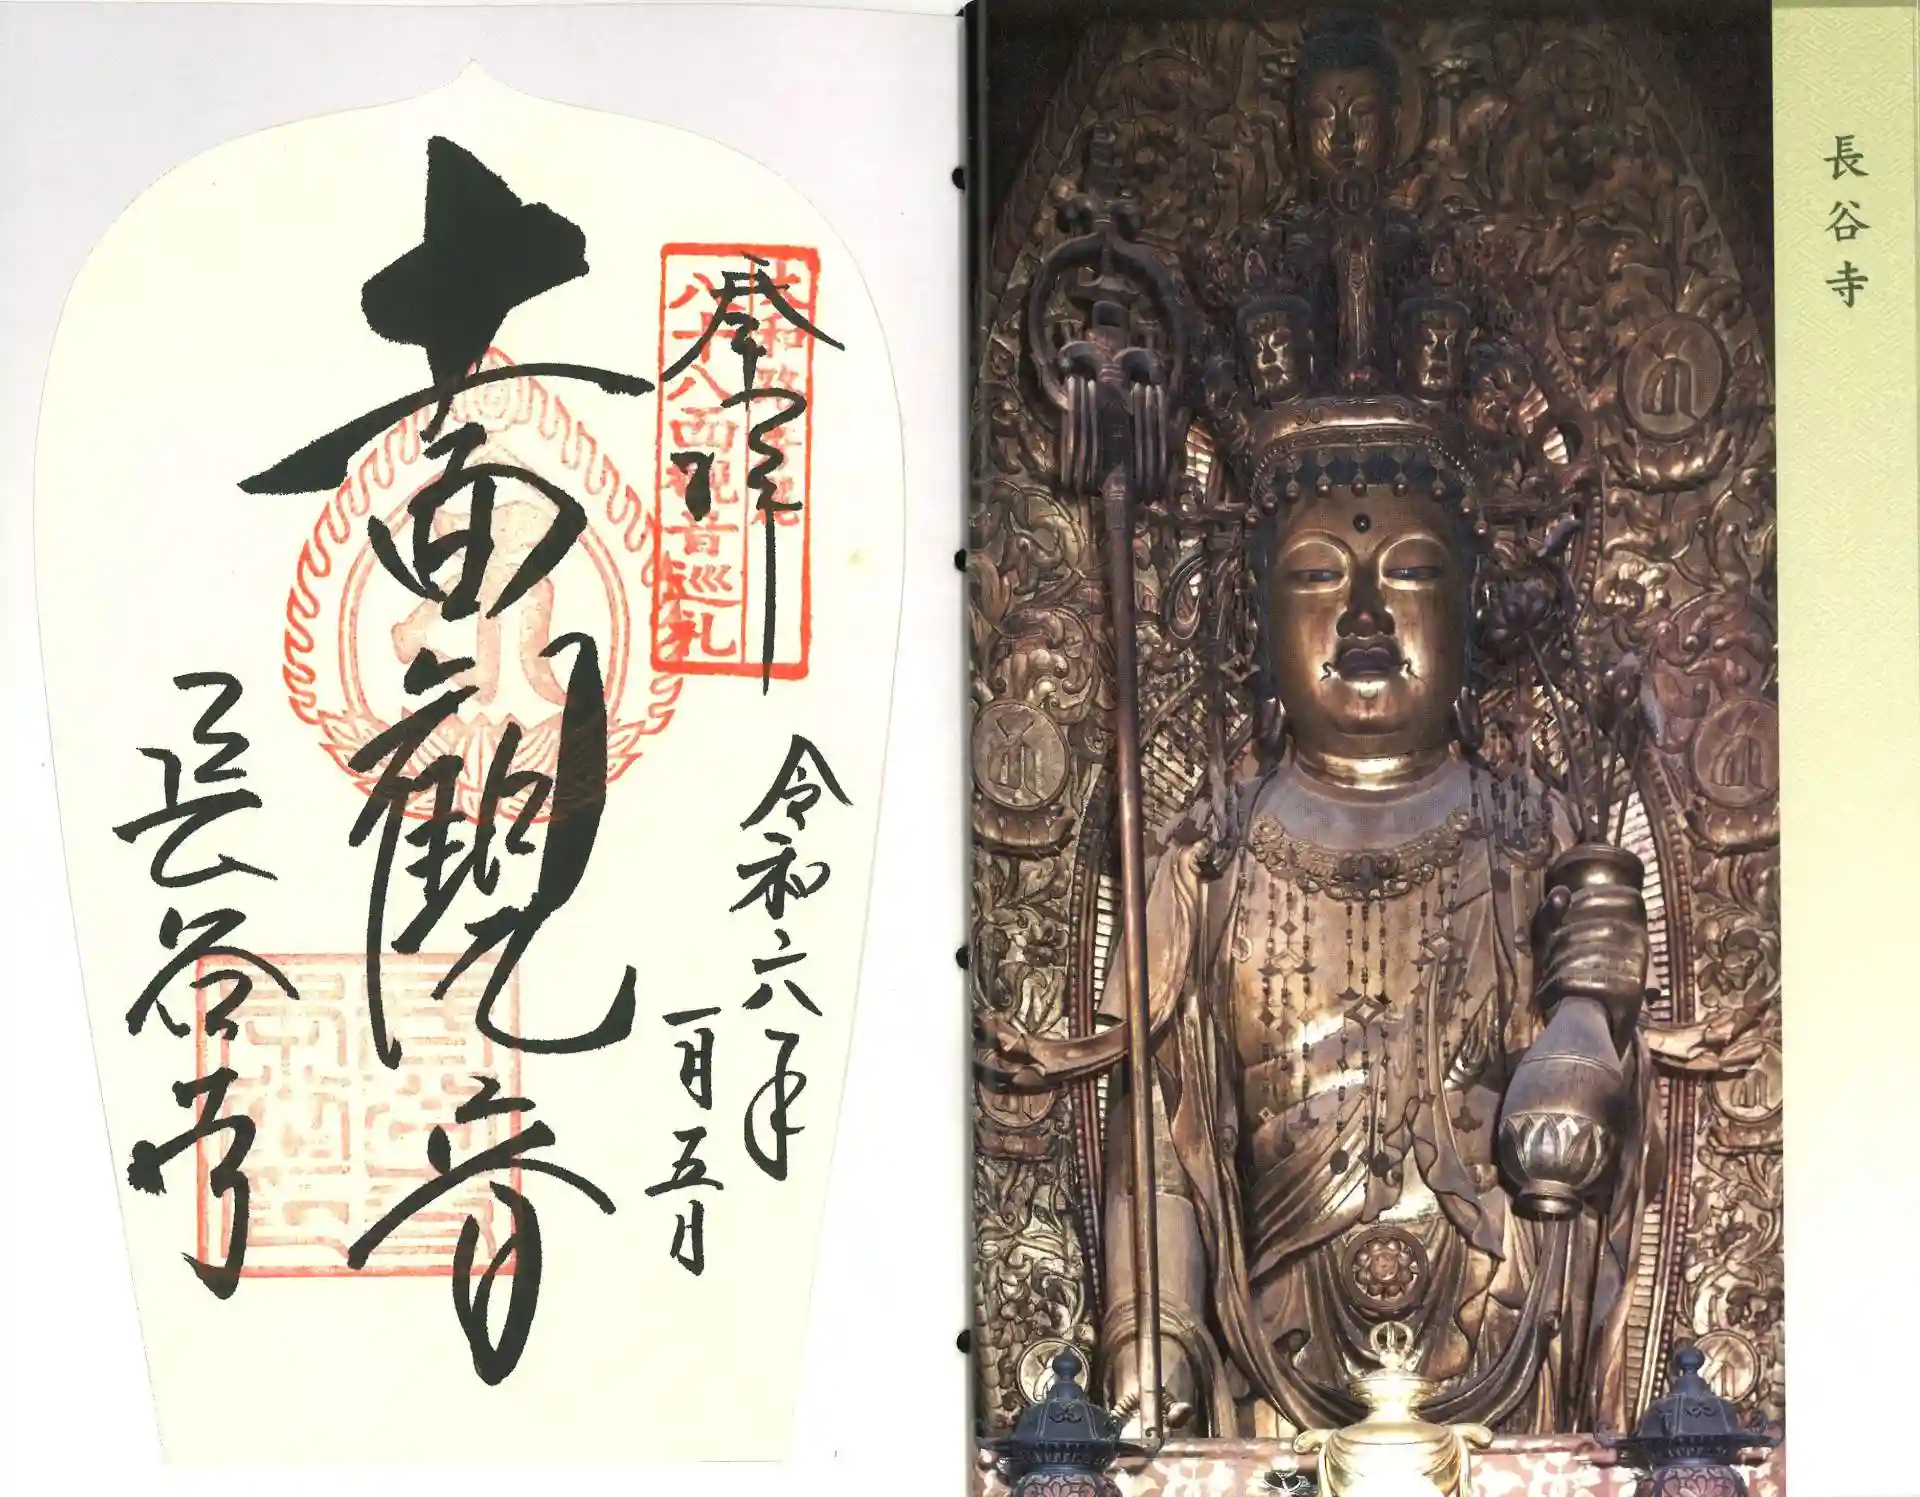 長谷寺
奉拝
大和路 秀麗
八十八面観音巡礼
令和六年
一月五日
十一面観音
長谷寺